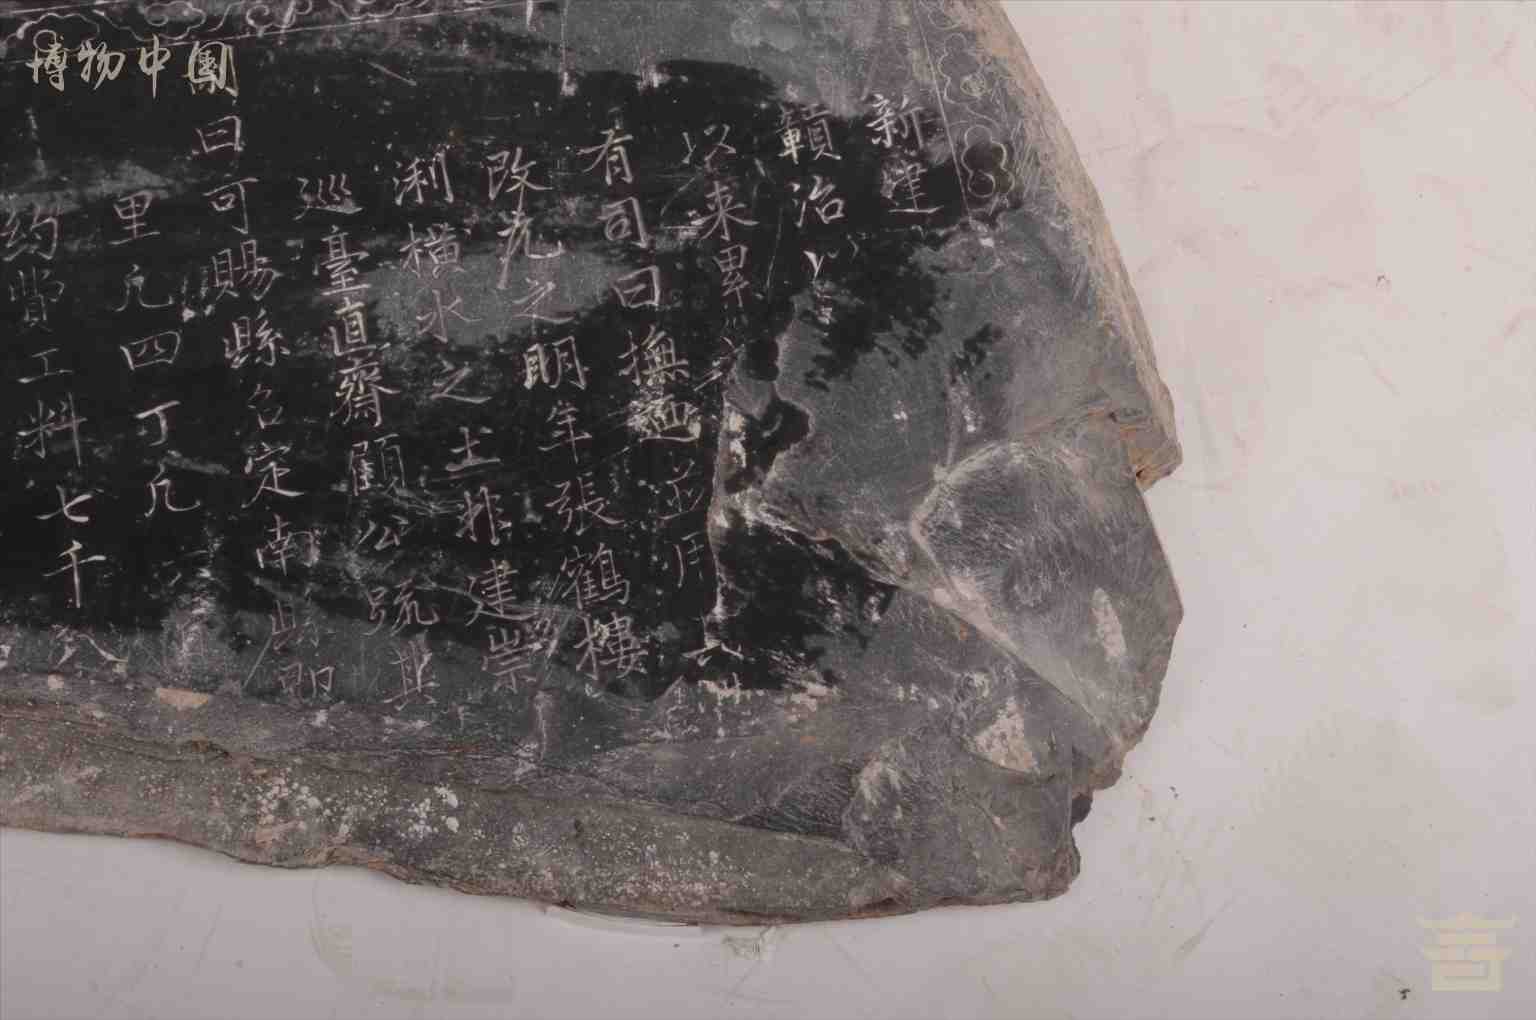 博物中國
新建
贛治
以来累
有司曰撫廵並用
改九之明年張鶴樓
浰橫水之土推建崇
廵臺直齋顧公疏其
曰可賜縣名定南縣即
里凡四丁凡
約費工料七千